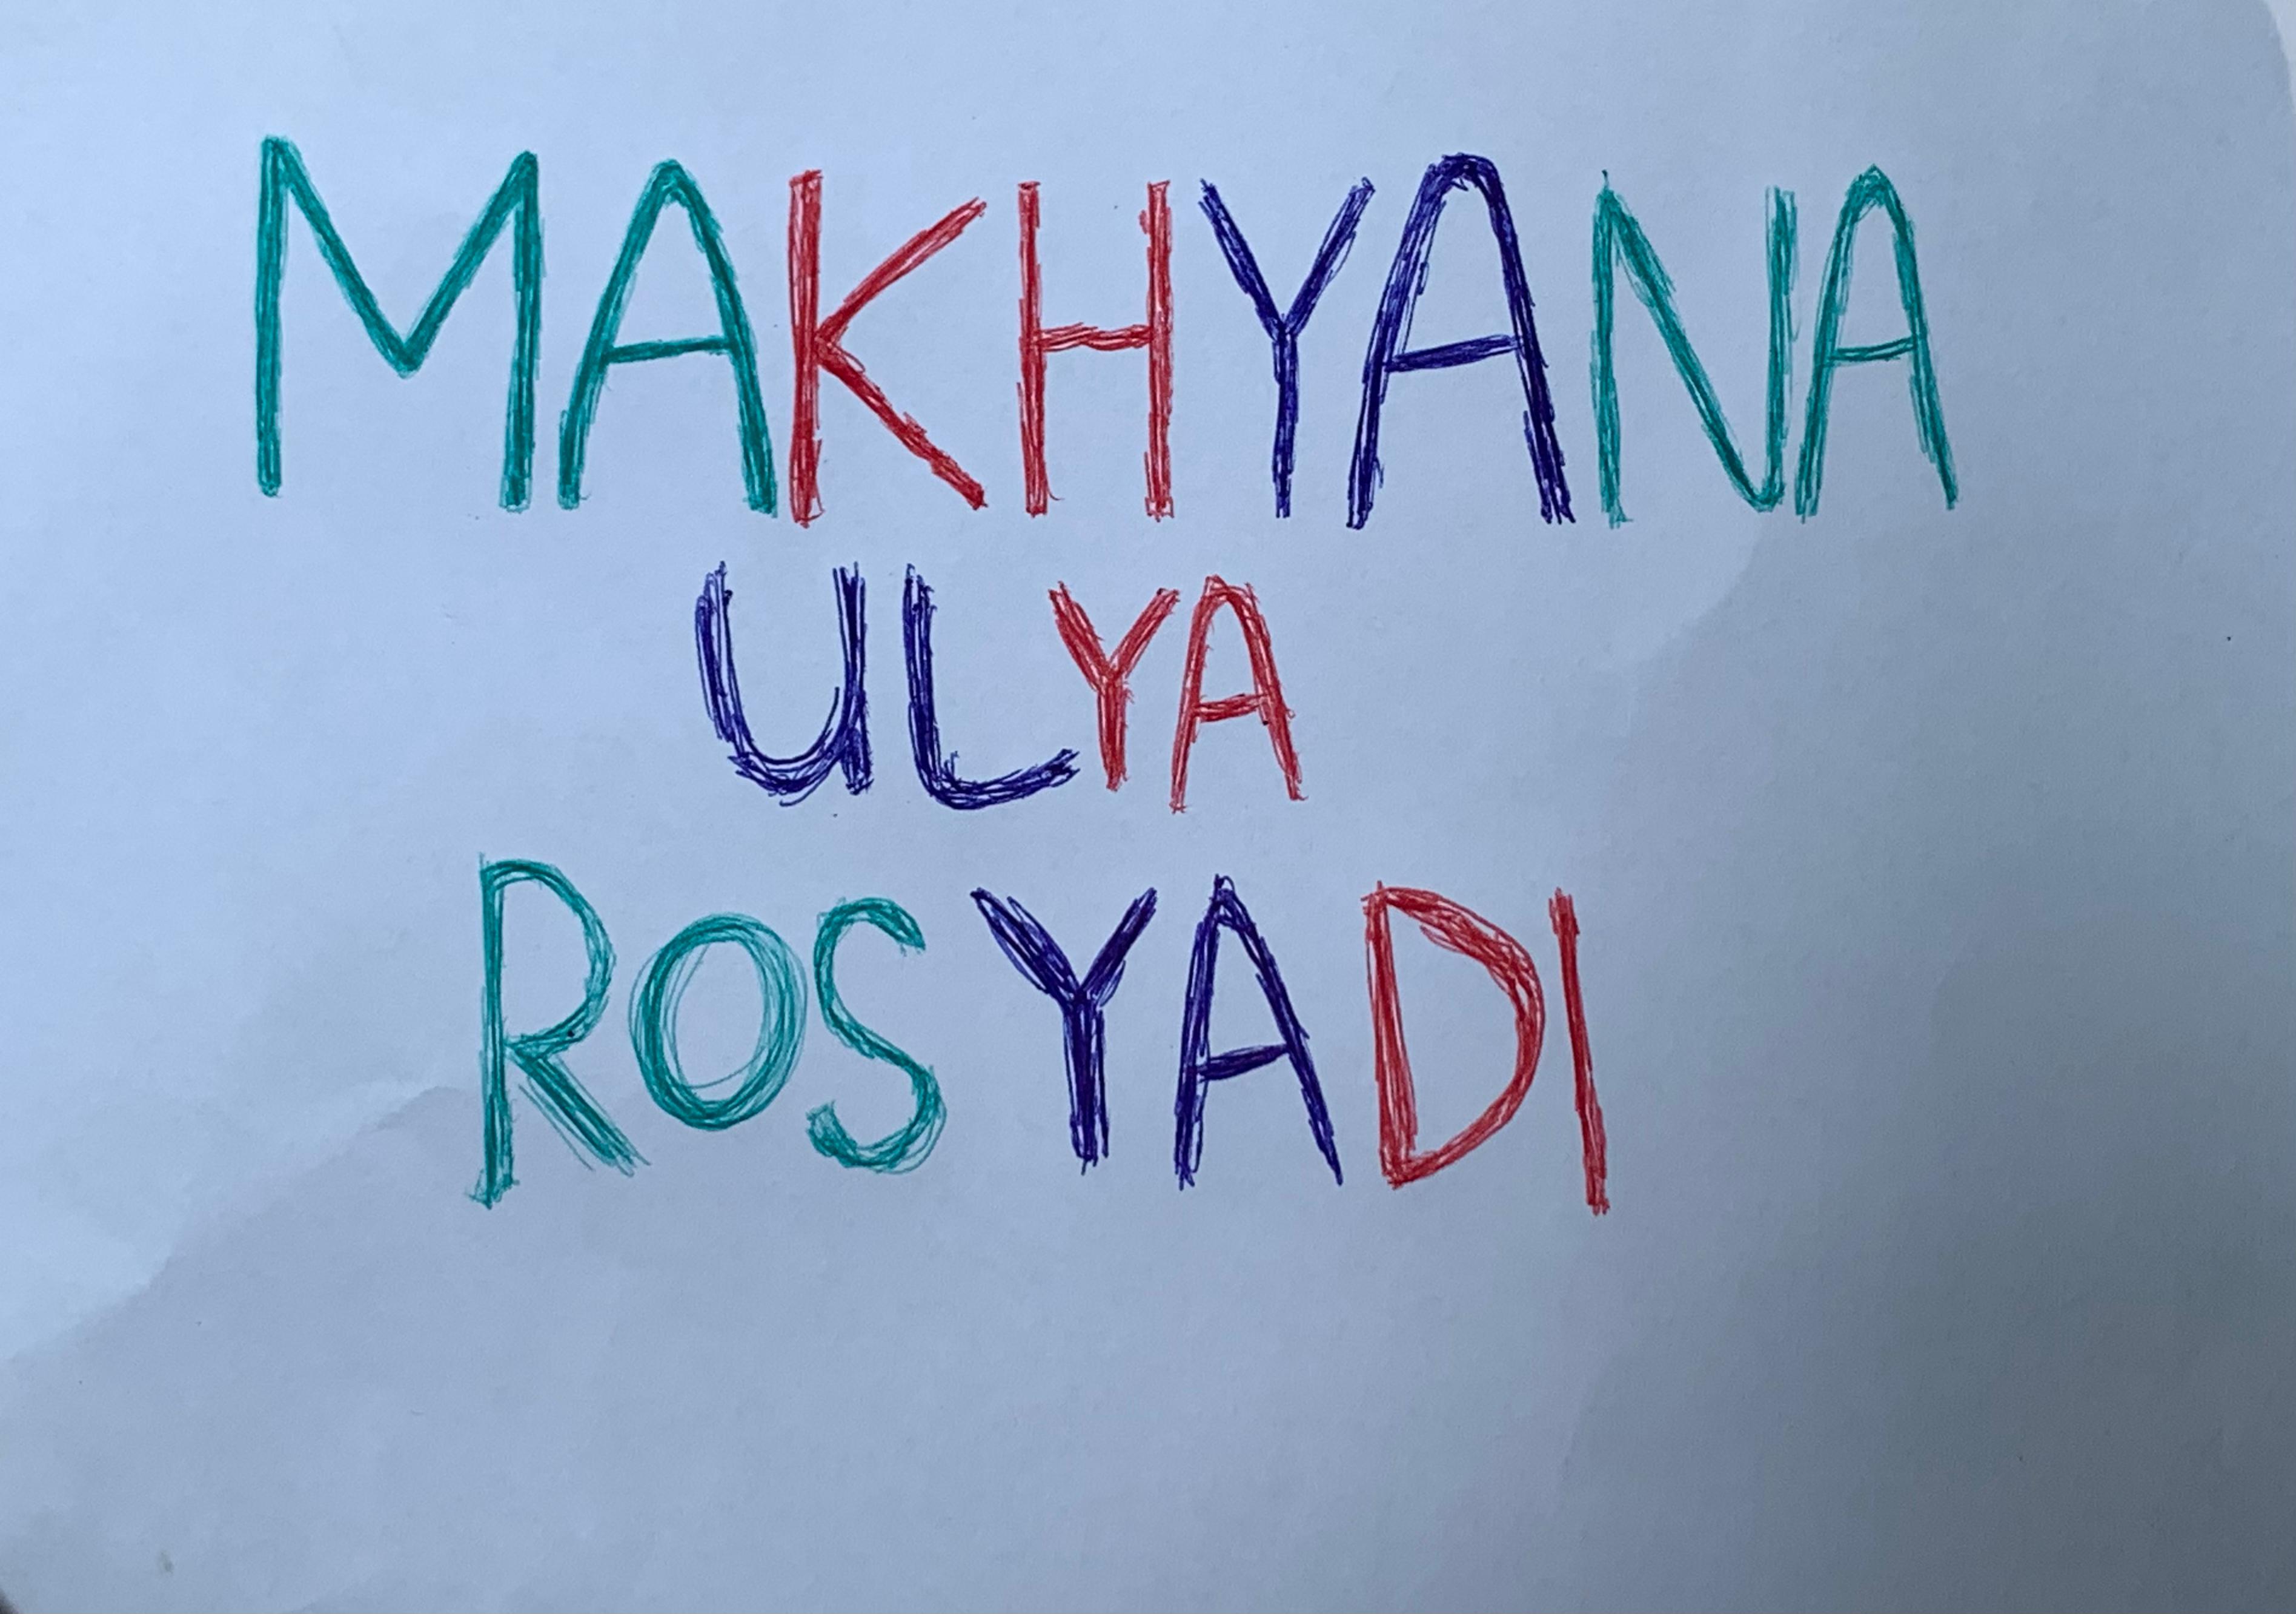 MAKHYANA
ULYA
ROSYADI